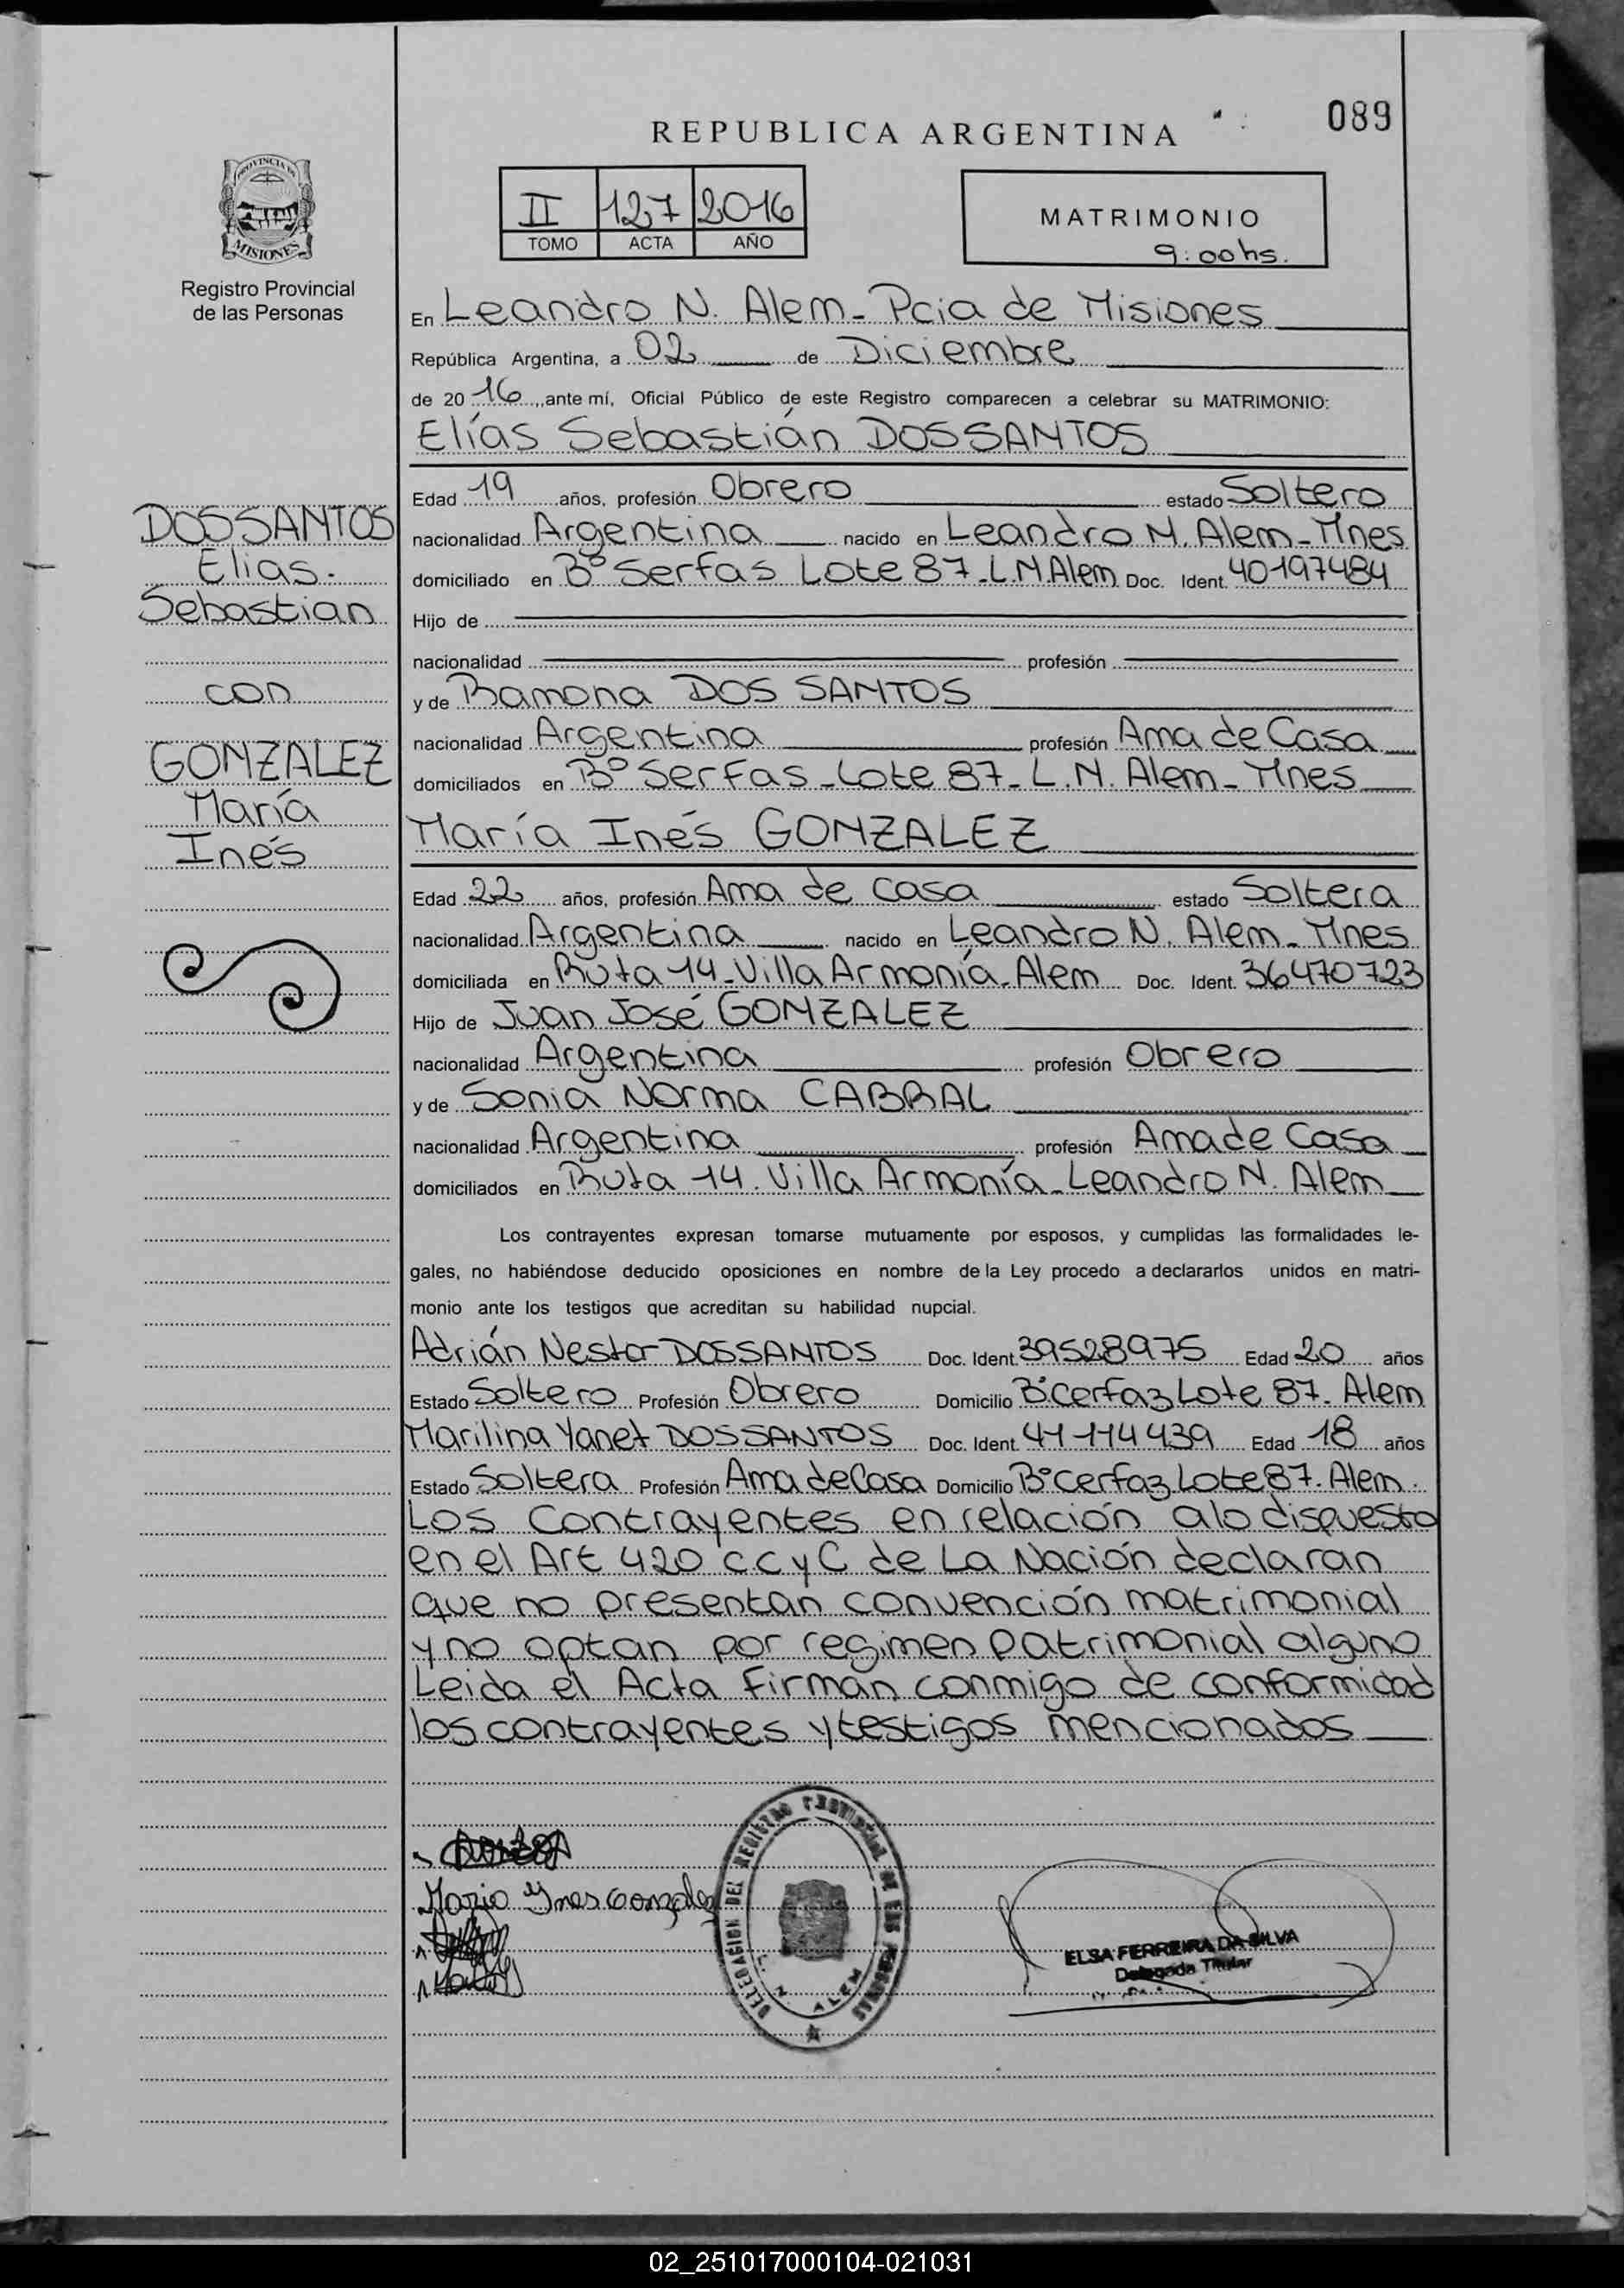 089
REPUBLICA ARGENTINA
PROVINCIA DE
MISIONES
Registro Provincial
de las Personas
II 127 2016
TOMO ACTA AÑO
MATRIMONIO
9:00hs.
En Leandro N. Alem - Pcia de Misiones
República Argentina, a 02 de Diciembre
de 2016, ante mí, Oficial Público de este Registro comparecen a celebrar su MATRIMONIO:
Elías Sebastián DOSSANTOS
Edad 19 años, profesión Obrero estado Soltero
nacionalidad Argentina nacido en Leandro N. Alem - Mnes
domiciliado en Bº Serfas Lote 87 - L.N Alem Doc. Ident. 40197484
Hijo de
nacionalidad profesión
y de Ramona DOS SANTOS
nacionalidad Argentina profesión Ama de Casa
domiciliados en Bº Serfas - Lote 87 - L.N. Alem - Mnes
María Inés GONZALEZ
Edad 22 años, profesión Ama de Casa estado Soltera
nacionalidad Argentina nacido en Leandro N. Alem - Mnes
domiciliada en Ruta 14 - Villa Armonía - Alem Doc. Ident. 36470723
Hijo de Juan José GONZALEZ
nacionalidad Argentina profesión Obrero
y de Sonia Norma CABRAL
nacionalidad Argentina profesión Ama de Casa
domiciliados en Ruta 14. Villa Armonía - Leandro N. Alem
DOSSANTOS
Elias
Sebastian
con
GONZALEZ
María
Inés
Los contrayentes expresan tomarse mutuamente por esposos, y cumplidas las formalidades le-
gales, no habiéndose deducido oposiciones en nombre de la Ley procedo a declararlos unidos en matri-
monio ante los testigos que acreditan su habilidad nupcial.
Adrián Nestor DOSSANTOS Doc. Ident. 39528975 Edad 20 años
Estado Soltero Profesión Obrero Domicilio Bº Cerfaz Lote 87. Alem
Marilina Yanet DOSSANTOS Doc. Ident. 41114439 Edad 18 años
Estado Soltera Profesión Ama de Casa Domicilio Bº Cerfaz Lote 87. Alem
Los Contrayentes en relación a lo dispuesto
en el Art 420 C.C y C de La Nación declaran
que no presentan convención matrimonial
y no optan por regimen patrimonial alguno
Leida el Acta Firman conmigo de conformidad
los contrayentes y testigos mencionados
Maria Ynes Gonzalez
DELEGACION DEL REGISTRO PROVINCIAL DE LAS PERSONAS
L. N. ALEM
ELSA FERREIRA DA SILVA
Delegada Titular
02_251017000104-021031